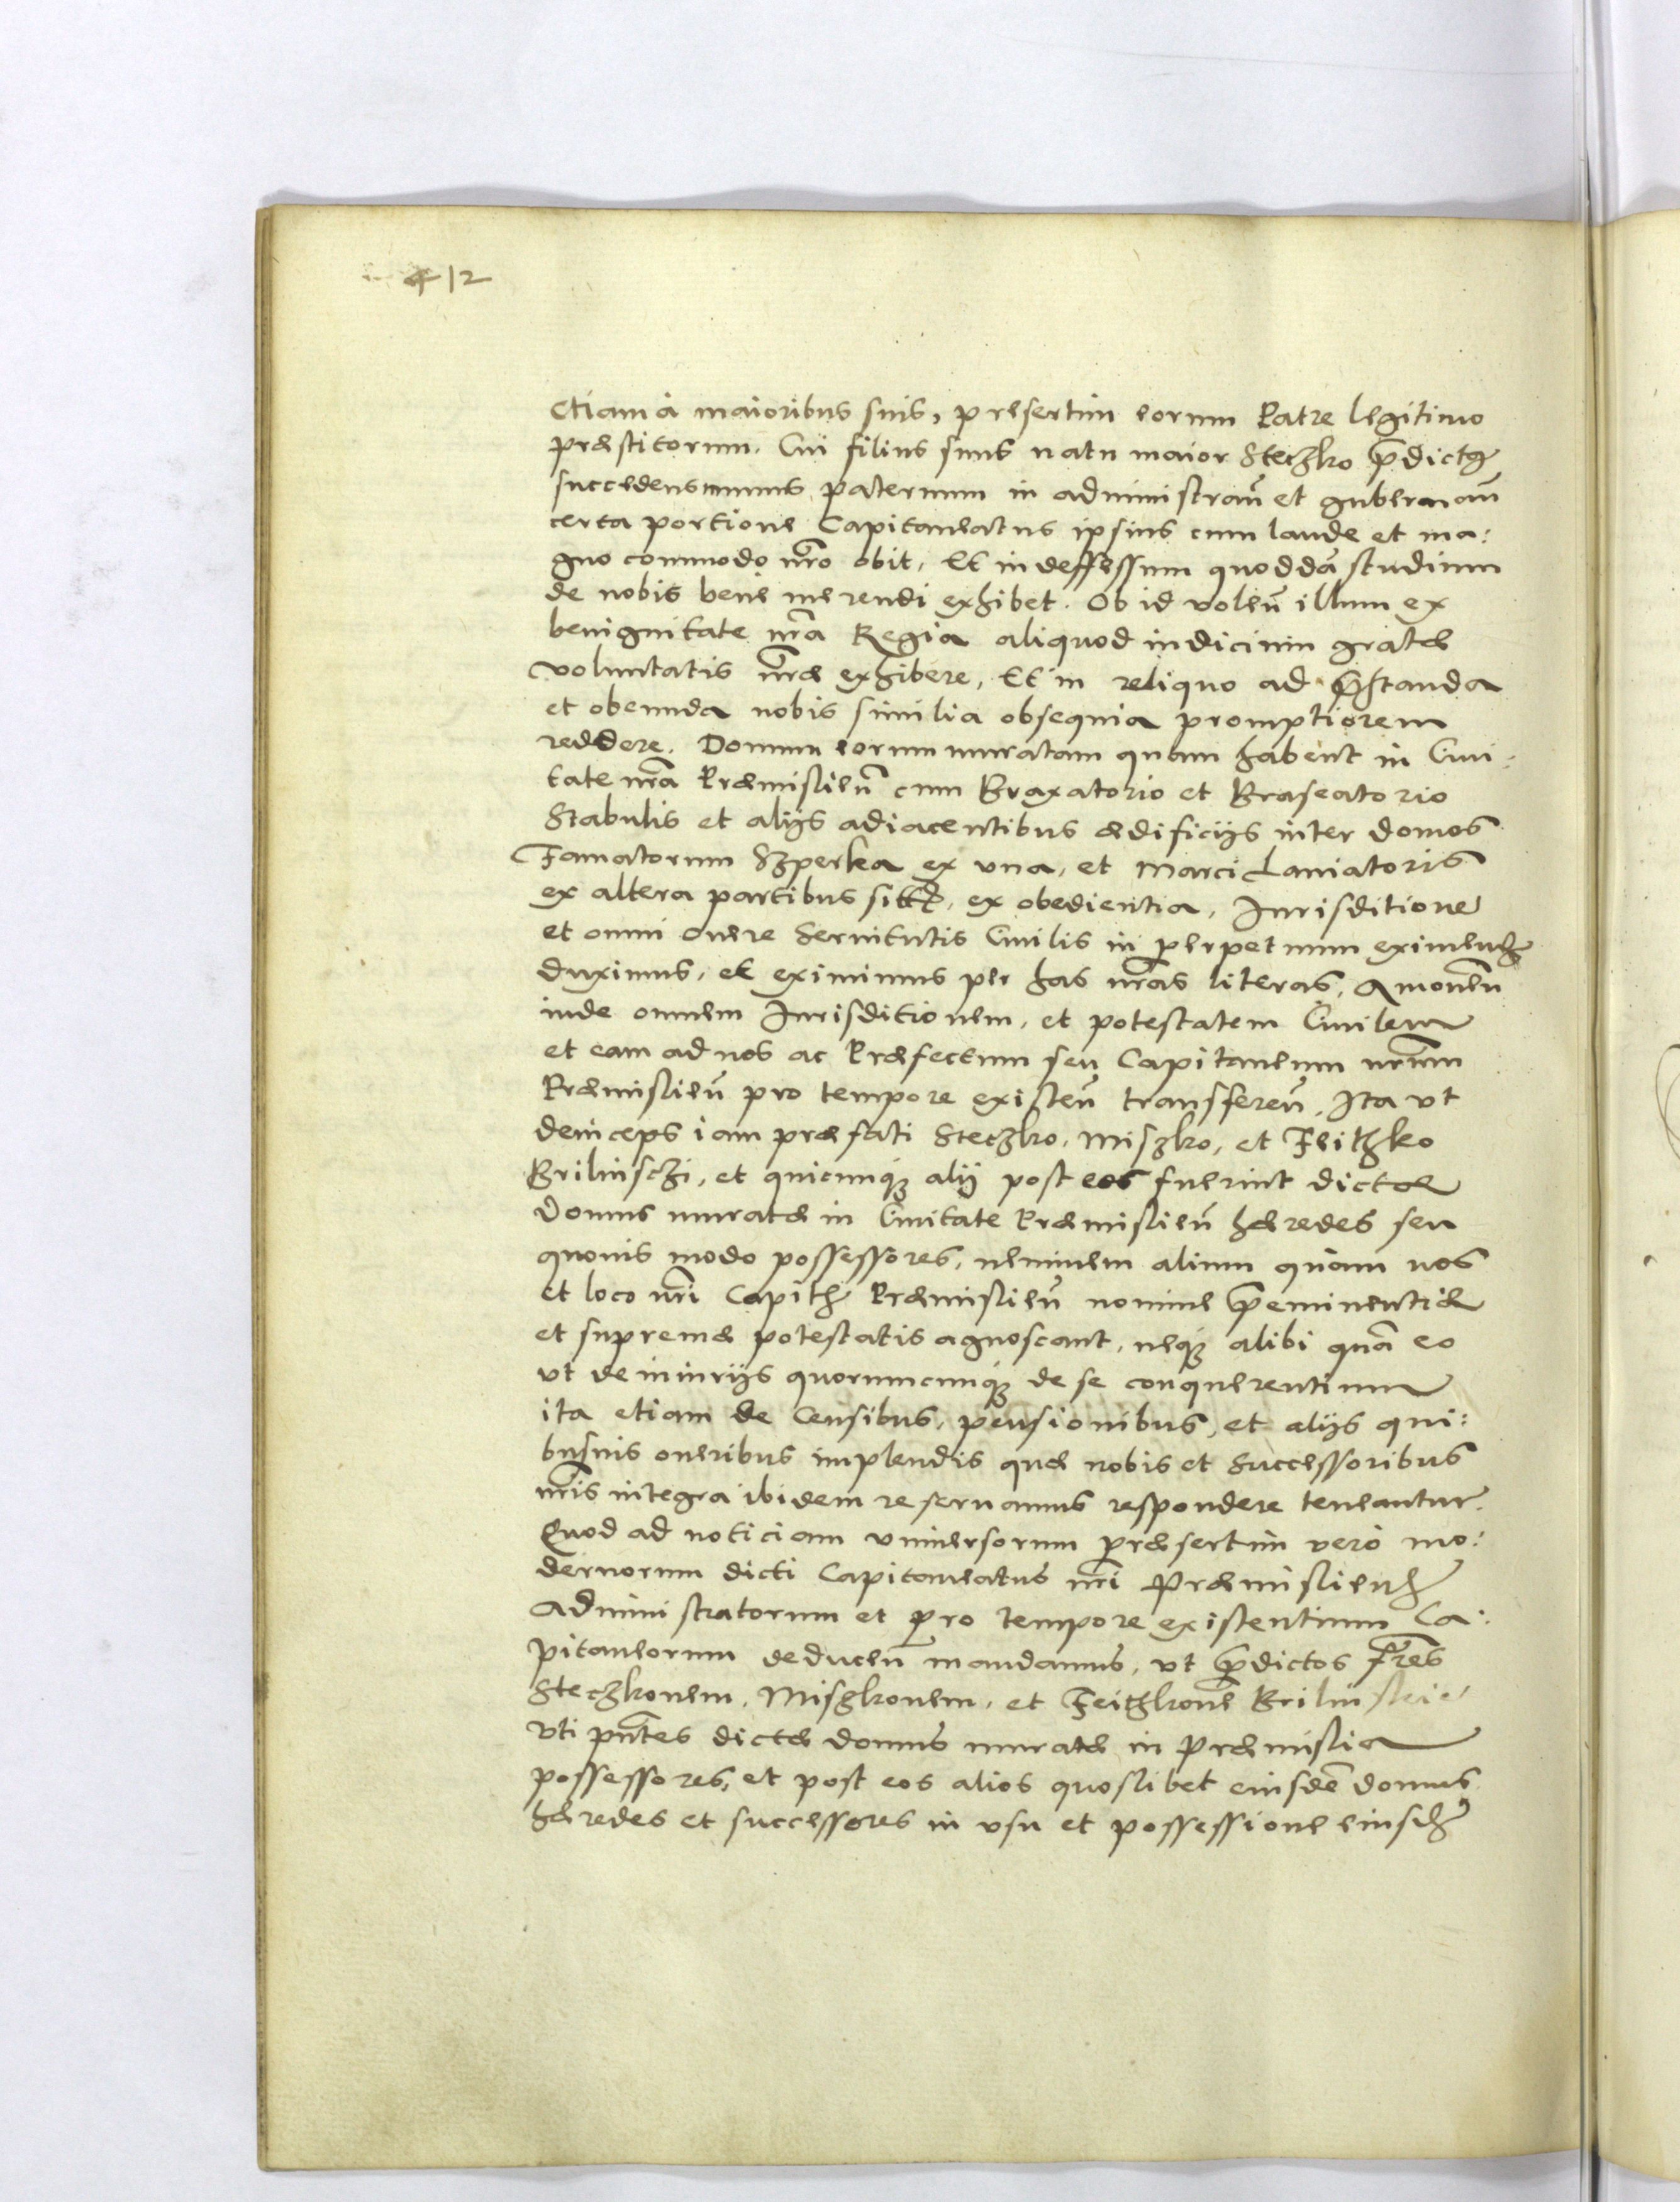 412
Etiam à maioribus suis, presertim eorum Patre legitimo
præstitorum. Cui filius suus natu maior Steczko p̄dictꝰ
succedens munus paternum in administrañ et gubernañ
certa portione Capitaneatus ipsius cum laude et ma:
gno commodo n̄ro obit, Et indeffessum quoddā studium
de nobis bene merendi exhibet. Ob id voleñ illum ex
benignitate n̄ra Regia aliquod indicium gratæ
voluntatis n̄ræ exhibere, Et in reliquo ad p̄standa
et obeunda nobis similia obsequia promptiorem
reddere. Domum eorum muratam quam habent in Civi:
tate n̄ra Præmislieñ cum Braxatorio et Braseatorio
Stabulis et alijs adiacentibus ædificijs inter domos
Famatorum Szperka ex vna, et Marci Laniatoris
ex altera partibus sitā, ex obedientia, Jurisditione
et omni onere Seruitutis Ciuilis in perpetuum eximendꝫ
duximus, et eximimus per has n̄ras literas, Amoueñ
inde omnem Jurisditionem, et potestatem Ciuilem
et eam ad nos ac Præfectum seu Capitaneum n̄rum
Præmislieñ pro tempore existeñ transfereñ, Ita vt
deinceps iam præfati Steczko, Miszko, et Feitzko
Brilinsczi, et quicunqꝫ alij post eos fuerint dictæ
domus muratæ in Ciuitate Præmislieñ hæredes seu
quouis modo possessores, neminem alium quàm nos
et loco n̄ri Capitꝫ Præmislieñ nomine p̄eminentiæ
et supremæ potestatis agnoscant, neqꝫ alibi quā eo
vt de iniurijs quorumcunqꝫ de se conquerentium
ita etiam de Censibus, pensionibus, et alijs qui:
busuis oneribus implendis quæ nobis et Successoribus
n̄ris integra ibidem reseruamus respondere teneantur.
Quod ad noticiam vniuersorum præsertim vero mo:
dernorum dicti Capitaneatus n̄ri Præmislienꝫ
Administratorum et pro tempore existentium Ca:
pitaneorum deduceñ mandamus, vt p̄dictos fr̄es
Steczkonem, Miszkonem, et Feitzkonē Brilinskie
vti pn̄tes dictæ domus muratæ in Præmislia
possessores, et post eos alios quoslibet eiusdē domus
hæredes et successores in vsu et possessione eiusdꝫ